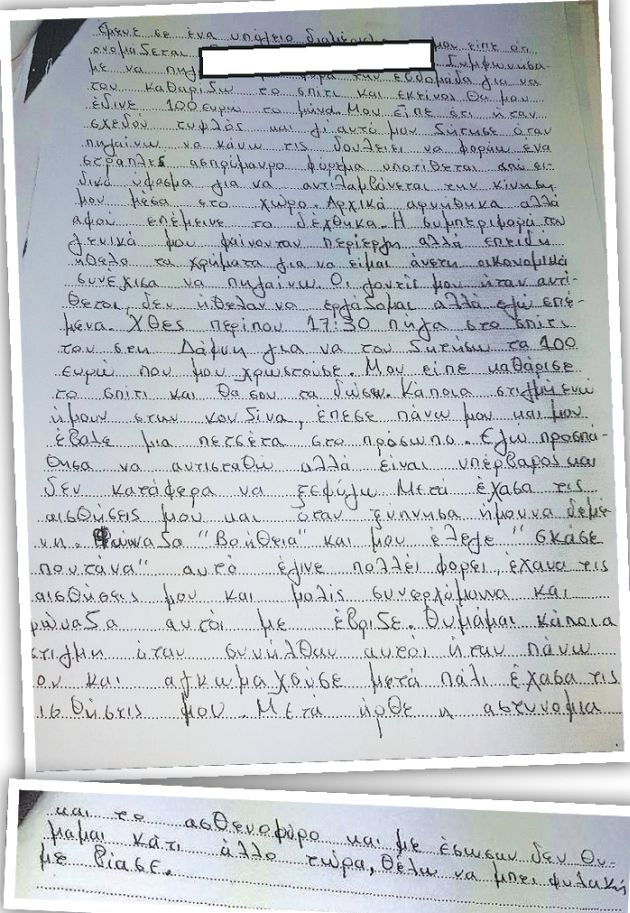 έμενε σε ένα υπόγειο διαμέρισμα μου είπε ότι
ονομάζεται Συμφωνησα
με να πηγ φορά την εβδομάδα για να
του καθαρίζω το σπίτι και εκείνος θα μου
έδινε 100 ευρώ το μήνα. Μου είπε ότι ήταν
σχεδόν τυφλός και γι αυτό μου ζήτησε όταν
πηγαίνω να κάνω τις δουλειες να φοράω ένα
στράπλες ασπρόμαυρο φόρεμα υποτίθεται από ει-
δικό ύφασμα για να αντιλαμβάνεται την κίνηση
μου μέσα στο χώρο. Αρχικά αρνήθηκα αλλά
αφού επέμεινε το δέχθηκα. Η συμπεριφορά του
γενικά μου φαίνονταν περίεργη αλλά επειδή
ήθελα τα χρήματα για να είμαι άνετη οικονομικά
συνέχισα να πηγαίνω. Οι γονείς μου ήταν αντί-
θετοι, δεν ήθελαν να εργάζομαι αλλά εγώ επέ-
μενα. Χθες περίπου 17:30 πήγα στο σπίτι
του στη Δάφνη για να του ζητήσω τα 100
ευρώ που μου χρωστούσε. Μου είπε καθάρισε
το σπίτι και θα σου τα δώσω. Κάποια στιγμή ενώ
ήμουν στην κουζίνα, έπεσε πάνω μου και μου
έβαλε μια πετσέτα στο πρόσωπο. Εγώ προσπά-
θησα να αντισταθώ αλλά είναι υπέρβαρος και
δεν κατάφερα να ξεφύγω. Μετά έχασα τις
αισθήσεις μου και όταν ξύπνησα ήμουνα δεμέ-
νη. Φώναζα "Βοήθεια" και μου έλεγε "σκάσε
πουτάνα" αυτό έγινε πολλές φορές, έχανα τις
αισθήσεις μου και μόλις συνερχόμουνα και
φώναζα αυτός με έβριζε. Θυμάμαι κάποια
στιγμη όταν συνήλθαν αυτός ήταν πάνω
ου και αγκωμαχούσε μετά πάλι έχασα τις
ισθήσεις μου. Μετά ήρθε η αστυνομία
και το ασθενοφόρο και με έσωσαν δεν θυ-
μάμαι κάτι άλλο τώρα, θέλω να μπει φυλακή
με βίασε.